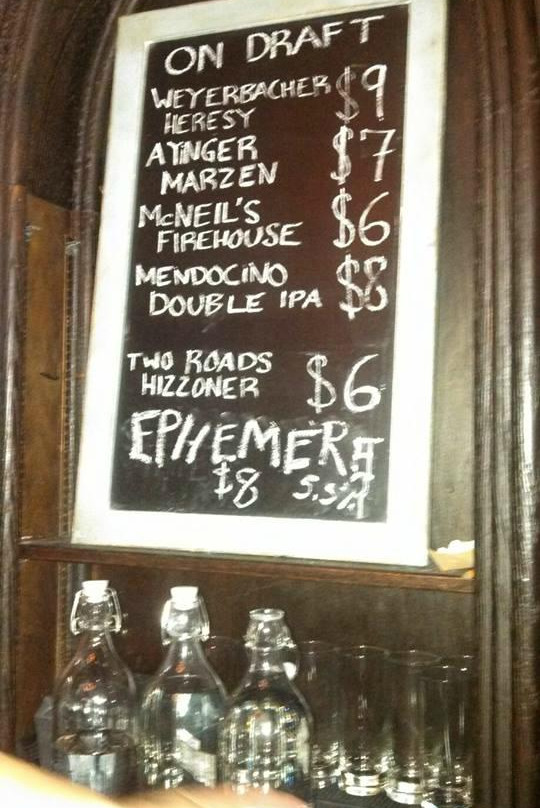 ON DRAFT
WEYERBACHER $9
HERESY
AYINGER $7
MARZEN
McNEIL'S $6
FIREHOUSE
MENDOCINO $8
DOUBLE IPA
TWO ROADS $6
HIZZONER
EPHEMERA
$8 5.5%